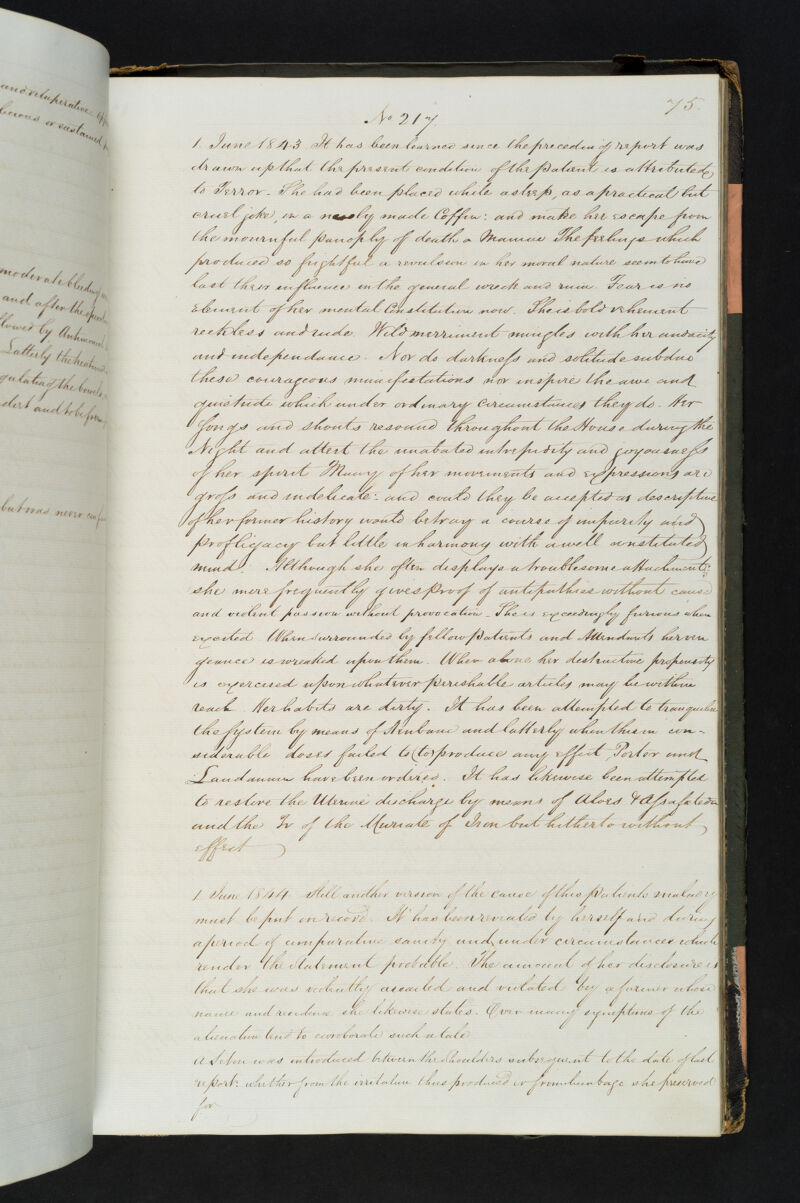 75.
No 217.
1. June 1843. It has been learned since the preceding report was
drawn up that the present condition of the patient is attributed
to Terror. She had been placed while asleep, as a practical but
cruel joke, in a newly made Coffin: and make her escape from
the mournful panoply of death a Maniac The feelings which
produced so frightful a revulsion in her moral nature seem to have
lost their influence in the general wreck and ruin. Fear is no
Element of her mental Constitution now. She is bold vehement
reckless and rude. Wild merriment mingles with her audacity
and independance. Nor do darkness and solitude subdue
these courageous manifestations nor inspire the awe and
quietude which under ordinary circumstances they do. Her
Songs and shouts resound throughout the House during the
Night and attest the unabated intrepidity and joyousness
of her spirit Many of her movements and expressions are
gross and indelicate: and could they be accepted as descriptive
of her former history would betray a course of impurity and
profligacy but little in harmony with a well constituted
mind. Although she often displays a troublesome attachment:
she more frequently gives proof of antipathies without cause
and violent passion without provocation. She is exceedingly furious when
excited. When surrounded by fellow patients and Attendants her ven
geance is wreaked upon them. When alone her destructive propensity
is exercised upon whatever perishable articles may be within
reach. Her habits are dirty. It has been attempted to tranquilize
the system by means of Henbane and latterly when this in con-
siderable doses failed to (to) produce any effect, Porter and
Laudanum have been ordered. It has likewise been attempted
to restore the Uterine discharge by means of Aloes & Assafatida
and the Tr of the Muriate of Iron but hitherto without
effect
1 June 1844 Still another version of the cause of this patients malady
must be put on record. It has been revealed by herself and during
a period of comparative sanity and under circumstances which
render the statement probable. The amount of her disclosure is
that she was violently assailed and violated by a farmer whose
name and residence she likewise states. Over many symptoms of the
alienation tend to corroborate such a tale
A Seton was introduced between the shoulders subsequent to the date of last
report: whether from the irritation thus produced or from she preserved
for
and vituperative
moderate bleeding
and after the
llowed by
Latterly the
gulating the bowels
dirt and to be from
but was never